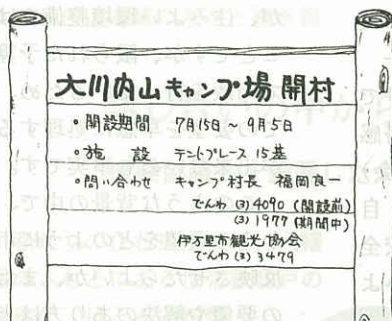 大川内山キャンプ場開村
・開設期間 7月15日〜9月5日
・施 設 テントプレース 15基
・問い合わせ キャンプ村長 福岡良一
でんわ(3)4090(開設前)
(3)1977(期間中)
伊万里市観光協会
でんわ(3)3479